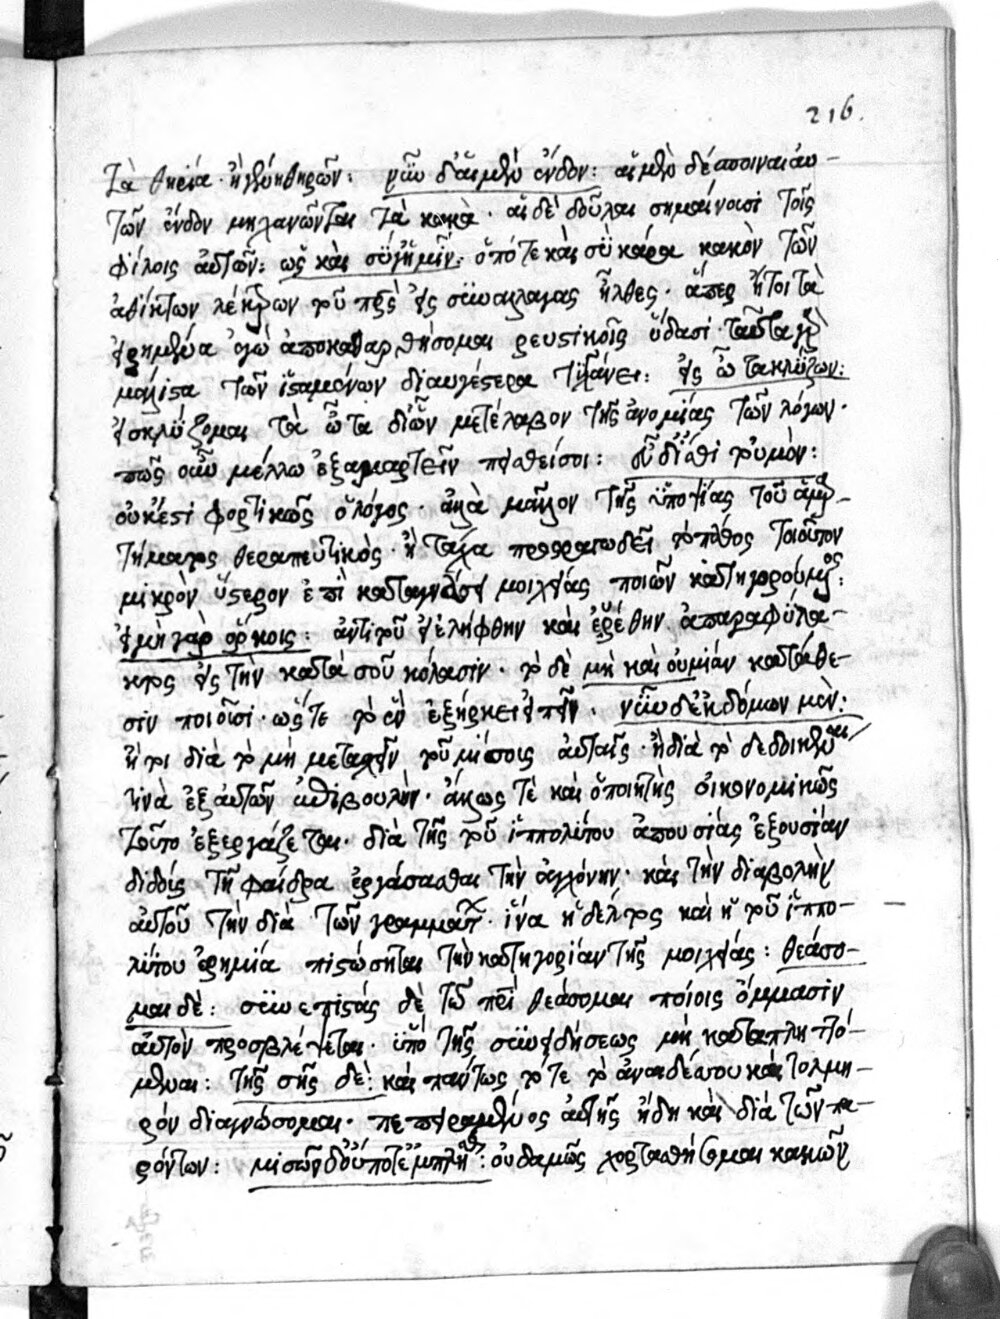 216.
τὰ θηρία· ἢ γοῦν θηρῶν: νῦν δ' αἱ μὲν ἔνδον: αἱ μὲν δέσποιναι αὐ-
τῶν ἔνδον μηχανῶνται τὰ κακὰ· αἱ δὲ δοῦλαι σημαίνουσι τοῖς
φίλοις αὐτῶν: ὡς καὶ σύ γ' ἡμῖν: ὁπότε καὶ σὺ κάρα κακὸν τῶν
ἀθίκτων λέκτρων τοῦ πρς εἰς συναλλαγὰς ἦλθες· ἅπερ ἤτοι τὰ
εἰρημένα ἐγὼ ἀποκαθαρθήσομαι ῥευστικοῖς ὕδασι· ταῦτα γὰρ
μάλιστα τῶν ἱσταμένων διαυγέστερα τυγχάνει: εἰς ὦτα κλύζων:
εἰσκλύζομαι τὰ ὦτα δι' ὧν μετέλαβον τῆς ἀνομίας τῶν λόγων·
πῶς οὖν μέλλω ἐξαμαρτεῖν πεισθεῖσι: εὖ δ' ἴσθι τοὐμὸν:
οὐκέτι φορτικῶς ὁ λόγος· ἀλλὰ μᾶλλον τῆς ὑποψίας τοῦ ἁμαρ-
τήματος θεραπευτικὸς· ἢ τάχα τὸ πάθος τοιοῦτον
μικρὸν ὕστερον ἐπὶ καταγνώσει μοιχείας ποιῶν κατηγορούμενος:
εἰ μὴ γὰρ ὅρκοις: ἀντὶ τοῦ εἰ ἐλήφθην καὶ εὑρέθην ἀπαραφύλα-
κτος εἰς τὴν κατὰ σοῦ κόλασιν· τὸ δὲ μὴ καὶ οὐ μίαν κατάθε-
σιν ποιοῦσι· ὥστε τὸ ἓν ἐξήρκει εἰπεῖν· νῦν δ' ἐκ δόμων μὲν:
ἤτοι διὰ τὸ μὴ μετασχεῖν τοῦ μίσους αὐταῖς· ἢ διὰ τὸ δεδοικέναι
τινὰ ἐξ αὐτῶν ἐπιβουλήν· ἄλλως τὲ καὶ ὁ ποιητὴς οἰκονομικῶς
τοῦτο ἐξεργάζεται· διὰ τῆς τοῦ ἱππολύτου ἀπουσίας ἐξουσίαν
διδοὺς τῇ φαίδρα ἐργάσασθαι τὴν ἀγχόνην· καὶ τὴν διαβολὴν
αὐτοῦ τὴν διὰ τῶν γραμμάτων· ἵνα ἡ δέλτος καὶ ἡ τοῦ ἱππο-
λύτου ἐρημία πιστώσηται τὴν κατηγορίαν τῆς μοιχείας: θεάσο-
μαι δὲ: συνεπιστὰς δὲ τῷ πρι θεάσομαι ποίοις ὄμμασιν
αὐτὸν προσβλέψεται· ὑπὸ τῆς συνειδήσεως μὴ καταπληττό-
μεναι: τῆς σῆς δὲ: καὶ πάντως τό τε τὸ ἀναιδέσπου καὶ τολμη-
ρόν διαγνώσομαι· πεπειραμένος αὐτῆς ἤδη καὶ διὰ τῶν πα-
ρόντων: μισῶν δ' οὔποτ' ἐμπλησθ: οὐδαμῶς χορτασθήσομαι κακῶν